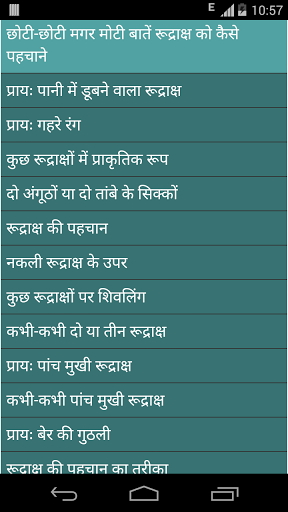 E 10:57
छोटी-छोटी मगर मोटी बातें रूद्राक्ष को कैसे
पहचाने
प्रायः पानी में डूबने वाला रूद्राक्ष
प्रायः गहरे रंग
कुछ रूद्राक्षों में प्राकृतिक रूप
दो अंगूठों या दो तांबे के सिक्कों
रूद्राक्ष की पहचान
नकली रूद्राक्ष के उपर
कुछ रूद्राक्षों पर शिवलिंग
कभी-कभी दो या तीन रूद्राक्ष
प्रायः पांच मुखी रूद्राक्ष
कभी-कभी पांच मुखी रूद्राक्ष
प्रायः बेर की गुठली
रूद्राक्ष की पहचान का तरीका